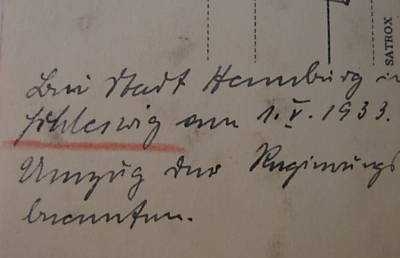 Bei Stadt Hamburg in
Schleswig am 1.V.1933.
Umzug der Regierungs
beamten.
SATROX